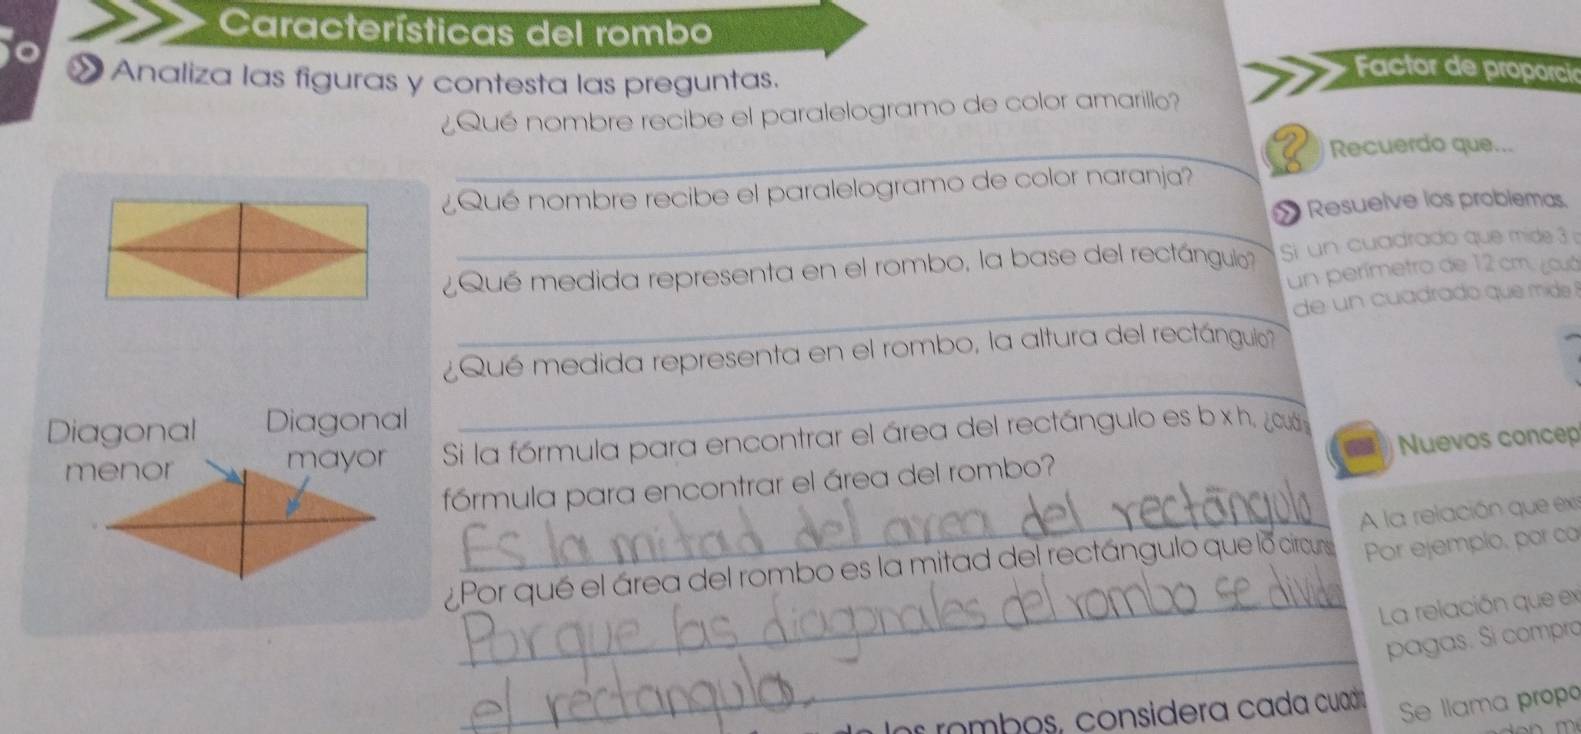 Características del rombo
Analiza las figuras y contesta las preguntas.
¿Qué nombre recibe el paralelogramo de color amarillo?
¿Qué nombre recibe el paralelogramo de color naranja?
¿Qué medida representa en el rombo, la base del rectángulo?
¿Qué medida representa en el rombo, la altura del rectángulo?
Diagonal menor
Diagonal mayor
Si la fórmula para encontrar el área del rectángulo es b x h, ¿cuál
fórmula para encontrar el área del rombo?
Es la mitad del area del rectángulo
¿Por qué el área del rombo es la mitad del rectángulo que lo circuns
Por que las diagonales del rombo se
el rectangulo.
los rombos, considera cada
Factor de proporció
Recuerdo que...
Resuelve los problemas.
Si un cuadrado que mide 3 c
un perímetro de 12 cm, ¿cuá
de un cuadrado que mide
Nuevos concep
A la relación que exis
Por ejemplo, por co
La relación que ex
pagas. Si compra
Se llama propo